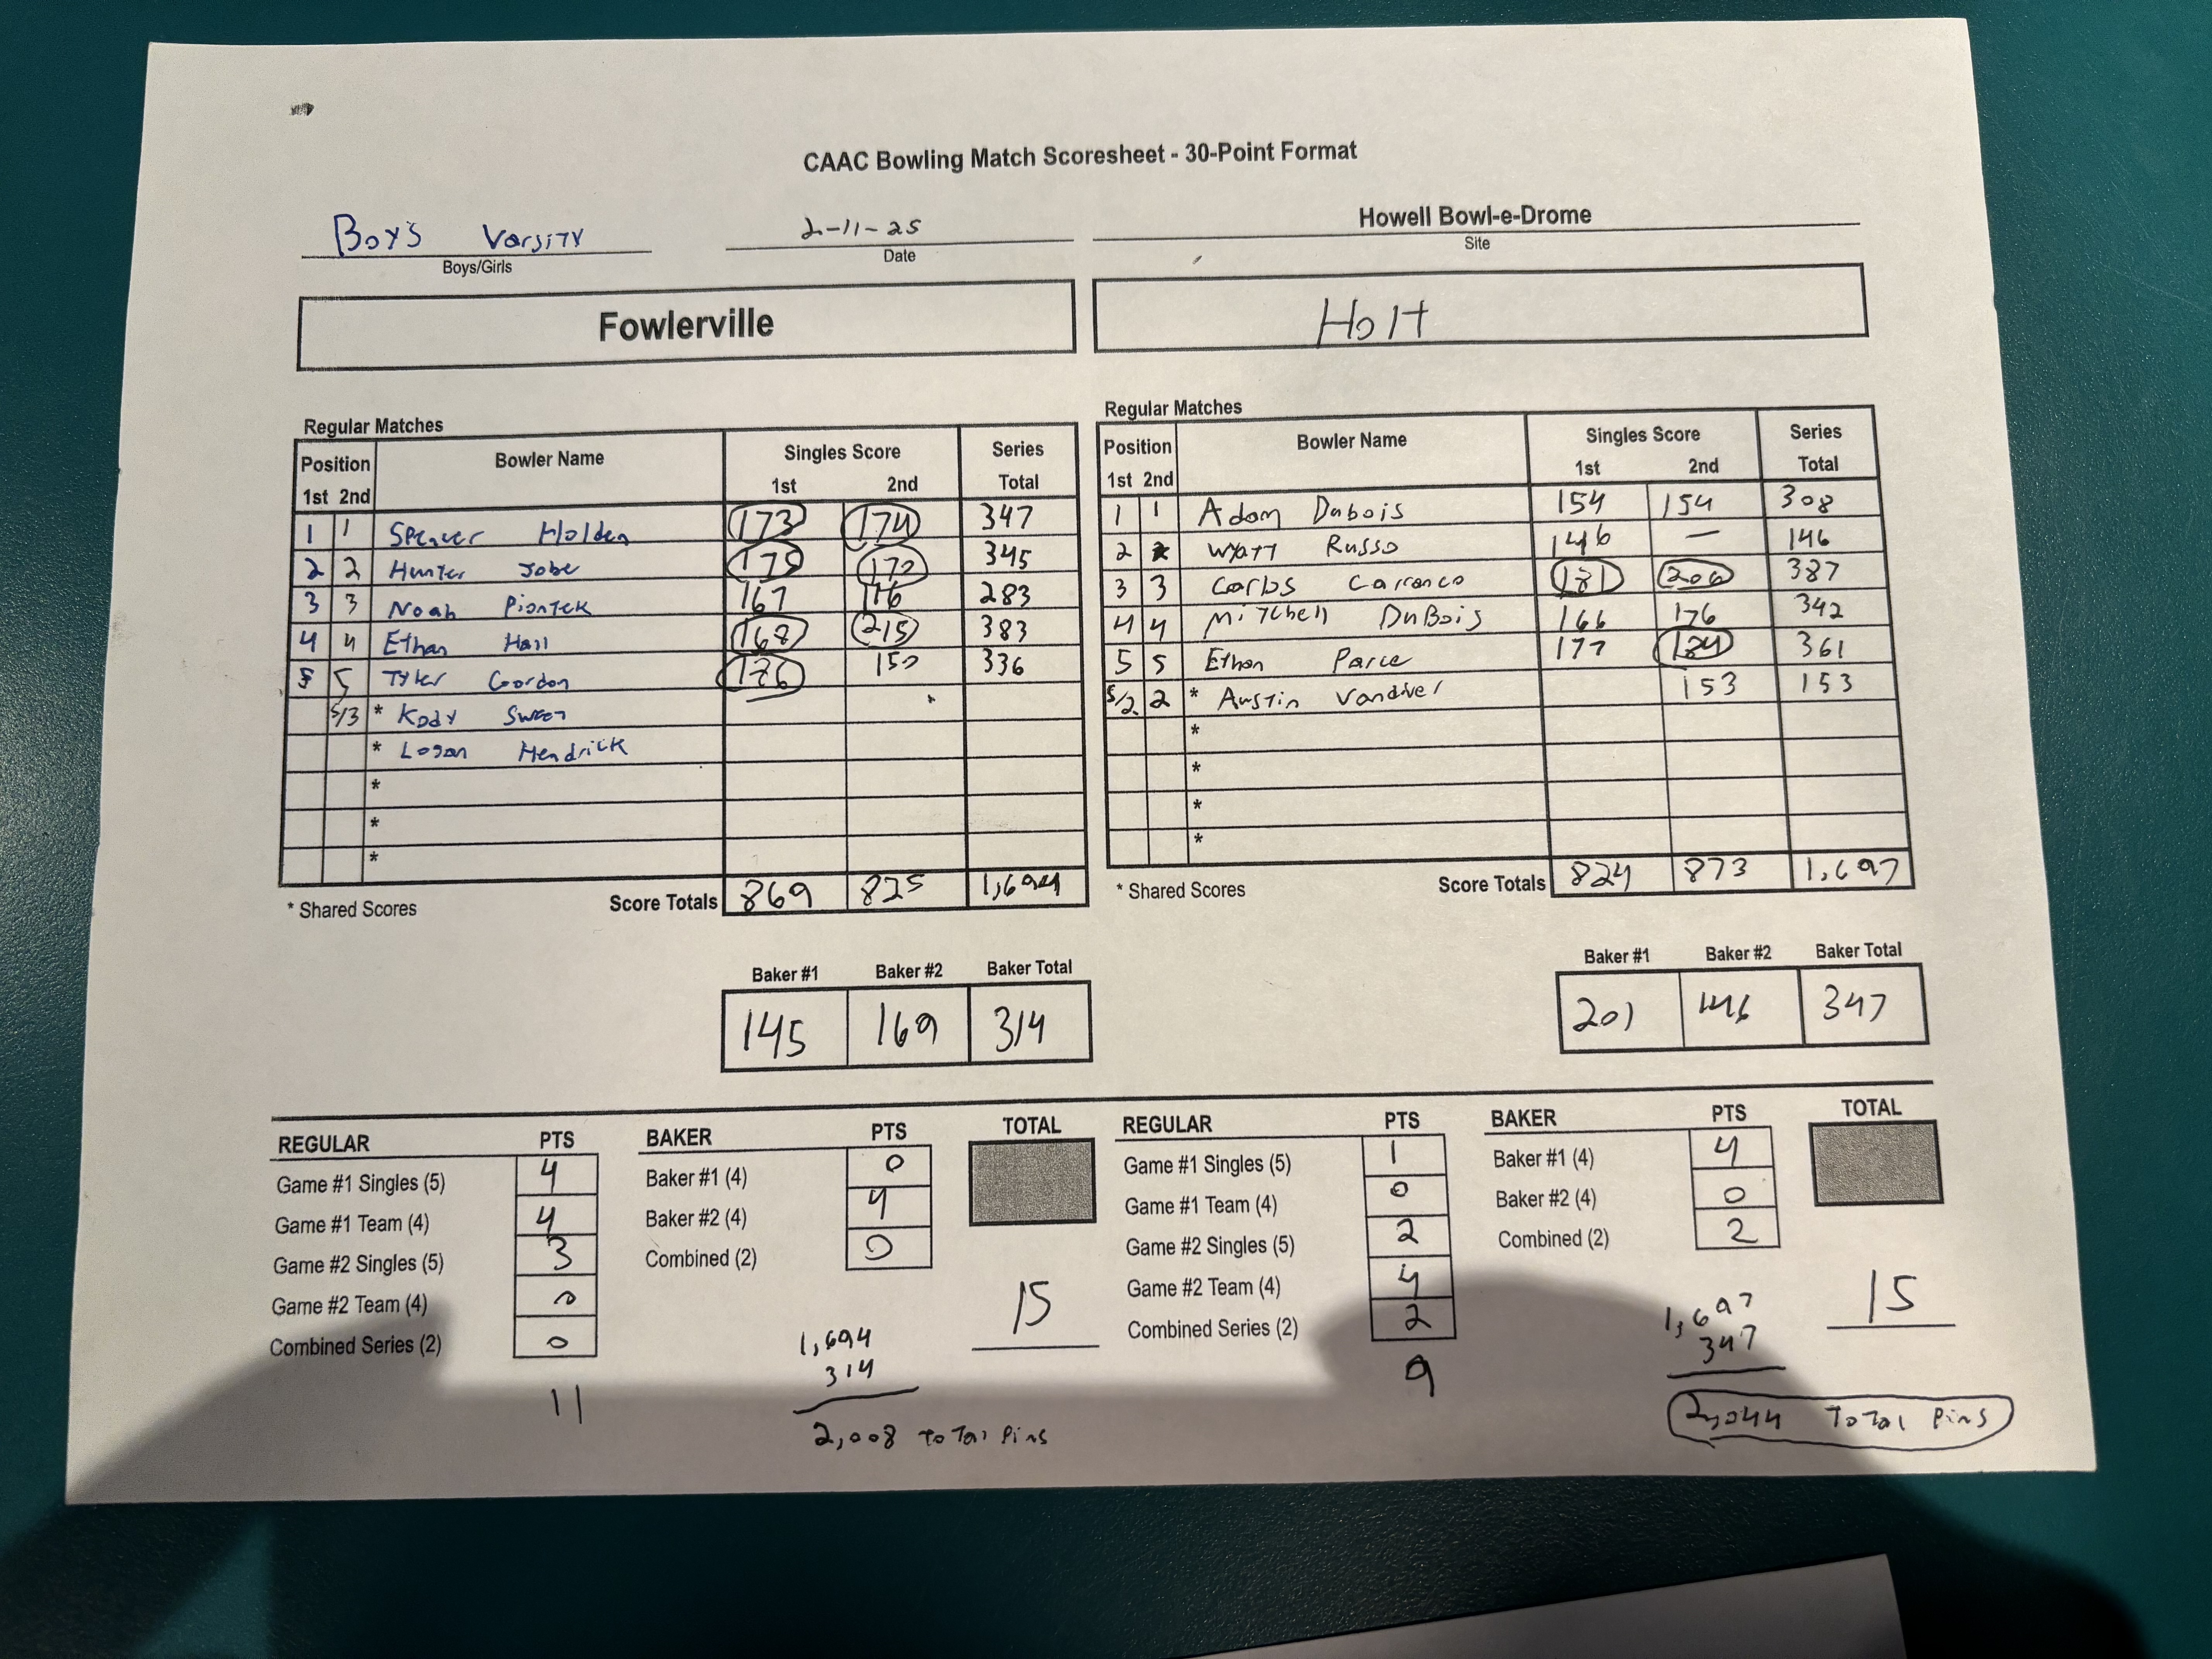 CAAC Bowling Match Scoresheet - 30-Point Format
Boys Varsity 2-11-25 Howell Bowl-e-Drome
Boys/Girls Date Site
Fowlerville Holt
Regular Matches
Position Bowler Name Singles Score Series
1st 2nd 1st 2nd Total
1 1 Spencer Holden 173 174 347
2 2 Hunter Jobe 175 170 345
3 3 Noah Piontek 167 116 283
4 4 Ethan Hall 168 215 383
5 5 Tyler Gordon 186 150 336
5/3 * Kody Sweet
* Logan Hendrick
*
*
*
* Shared Scores Score Totals 869 825 1,694
Regular Matches
Position Bowler Name Singles Score Series
1st 2nd 1st 2nd Total
1 1 Adam Dubois 154 154 308
2 Wyatt Russo 146 — 146
3 3 Carlos Carranco 181 206 387
4 4 Mitchell DuBois 166 176 342
5 5 Ethan Parce 177 184 361
5/2 2 * Austin Vandiver 153 153
*
*
*
*
* Shared Scores Score Totals 824 873 1,697
Baker #1 Baker #2 Baker Total
145 169 314
Baker #1 Baker #2 Baker Total
201 146 347
REGULAR PTS
Game #1 Singles (5) 4
Game #1 Team (4) 4
Game #2 Singles (5) 3
Game #2 Team (4) 0
Combined Series (2) 0
11
BAKER PTS
Baker #1 (4) 0
Baker #2 (4) 4
Combined (2) 0
TOTAL
15
1,694
314
2,008 Total Pins
REGULAR PTS
Game #1 Singles (5) 1
Game #1 Team (4) 0
Game #2 Singles (5) 2
Game #2 Team (4) 4
Combined Series (2) 2
9
BAKER PTS
Baker #1 (4) 4
Baker #2 (4) 0
Combined (2) 2
TOTAL
15
1,697
347
2,044 Total Pins